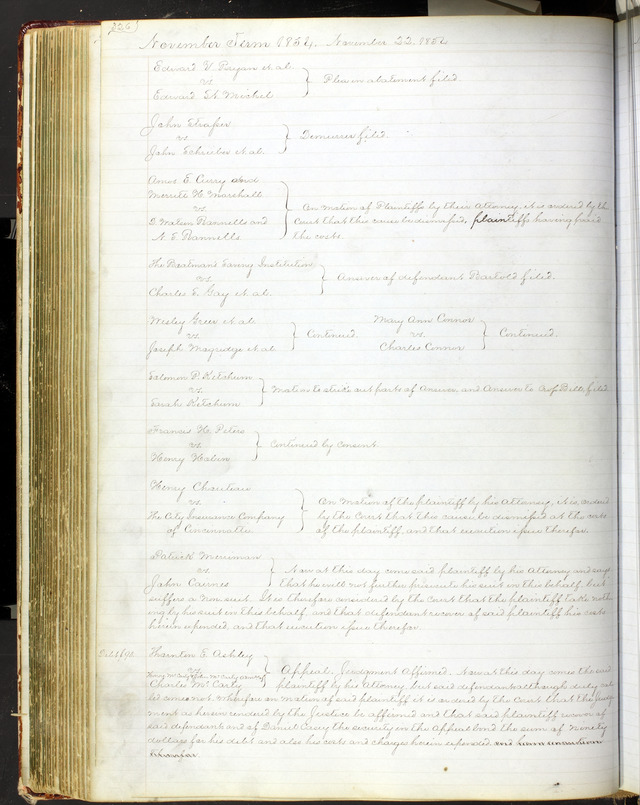 226
November Term 1854. November 22. 1854
Edward V. Bryan et al.
vs
Plea in abatement filed
Edward H. Mochel
John
vs.
Demurrer filed.
John Schreiber et al.
Amos E. Curry and
Merritt H. Marshall
vs
On motion of Plaintiffs by their Attorney, it is ordered by the
D. Malin Rannells and
Court that this cause be dismissed, plaintiffs having paid
N. E. Rannells
the costs.
The Boatman's Saving Institution
vs.
Answer of defendant Bartold filed.
Charles E. Gay et al.
Wesley Greer et al.
Mary Ann Connor
vs
Continued
vs.
Continued.
Joseph et al
Charles Connor
Solomon P. Ketchum
vs
Motion to strike out parts of Answer and Answer to Bill filed
Sarah Ketchum
Francis H. Peters
vs.
Continued by consent
Henry
Henry Chouteau
vs
On motion of the plaintiff by his Attorney, it is, ordered
The City Insurance Company
by the Court that this cause be dismissed at the costs
of Cincinnati
of the plaintiff, and that execution issue therefor.
Patrick Merriman
vs.
Now at this day came said plaintiff by his Attorney and says
John Cairnes
that he will not further prosecute his suit in this behalf, but
suffers a Non suit. It is therefore considered by the Court that the plaintiff take noth
ing by his suit in this behalf and that defendant recover of said plaintiff his costs
herein expended, and that execution issue therefor.
Thornton E. Ashley
vs
Appeal, Judgment Affirmed. Now at this day comes the said
Charles McCarty
plaintiff by his Attorney, but said defendant although duly
ed comes not, Wherefore on motion of said plaintiff it is ordered by the Court that the Judge
ment as herein rendered by the Justice be affirmed and that said plaintiff recover of
said defendant and of Daniel Carey the security in the Appeal bond the sum of Ninety
dollars for his debt and also his costs and charges herein expended and have execution
therefor.